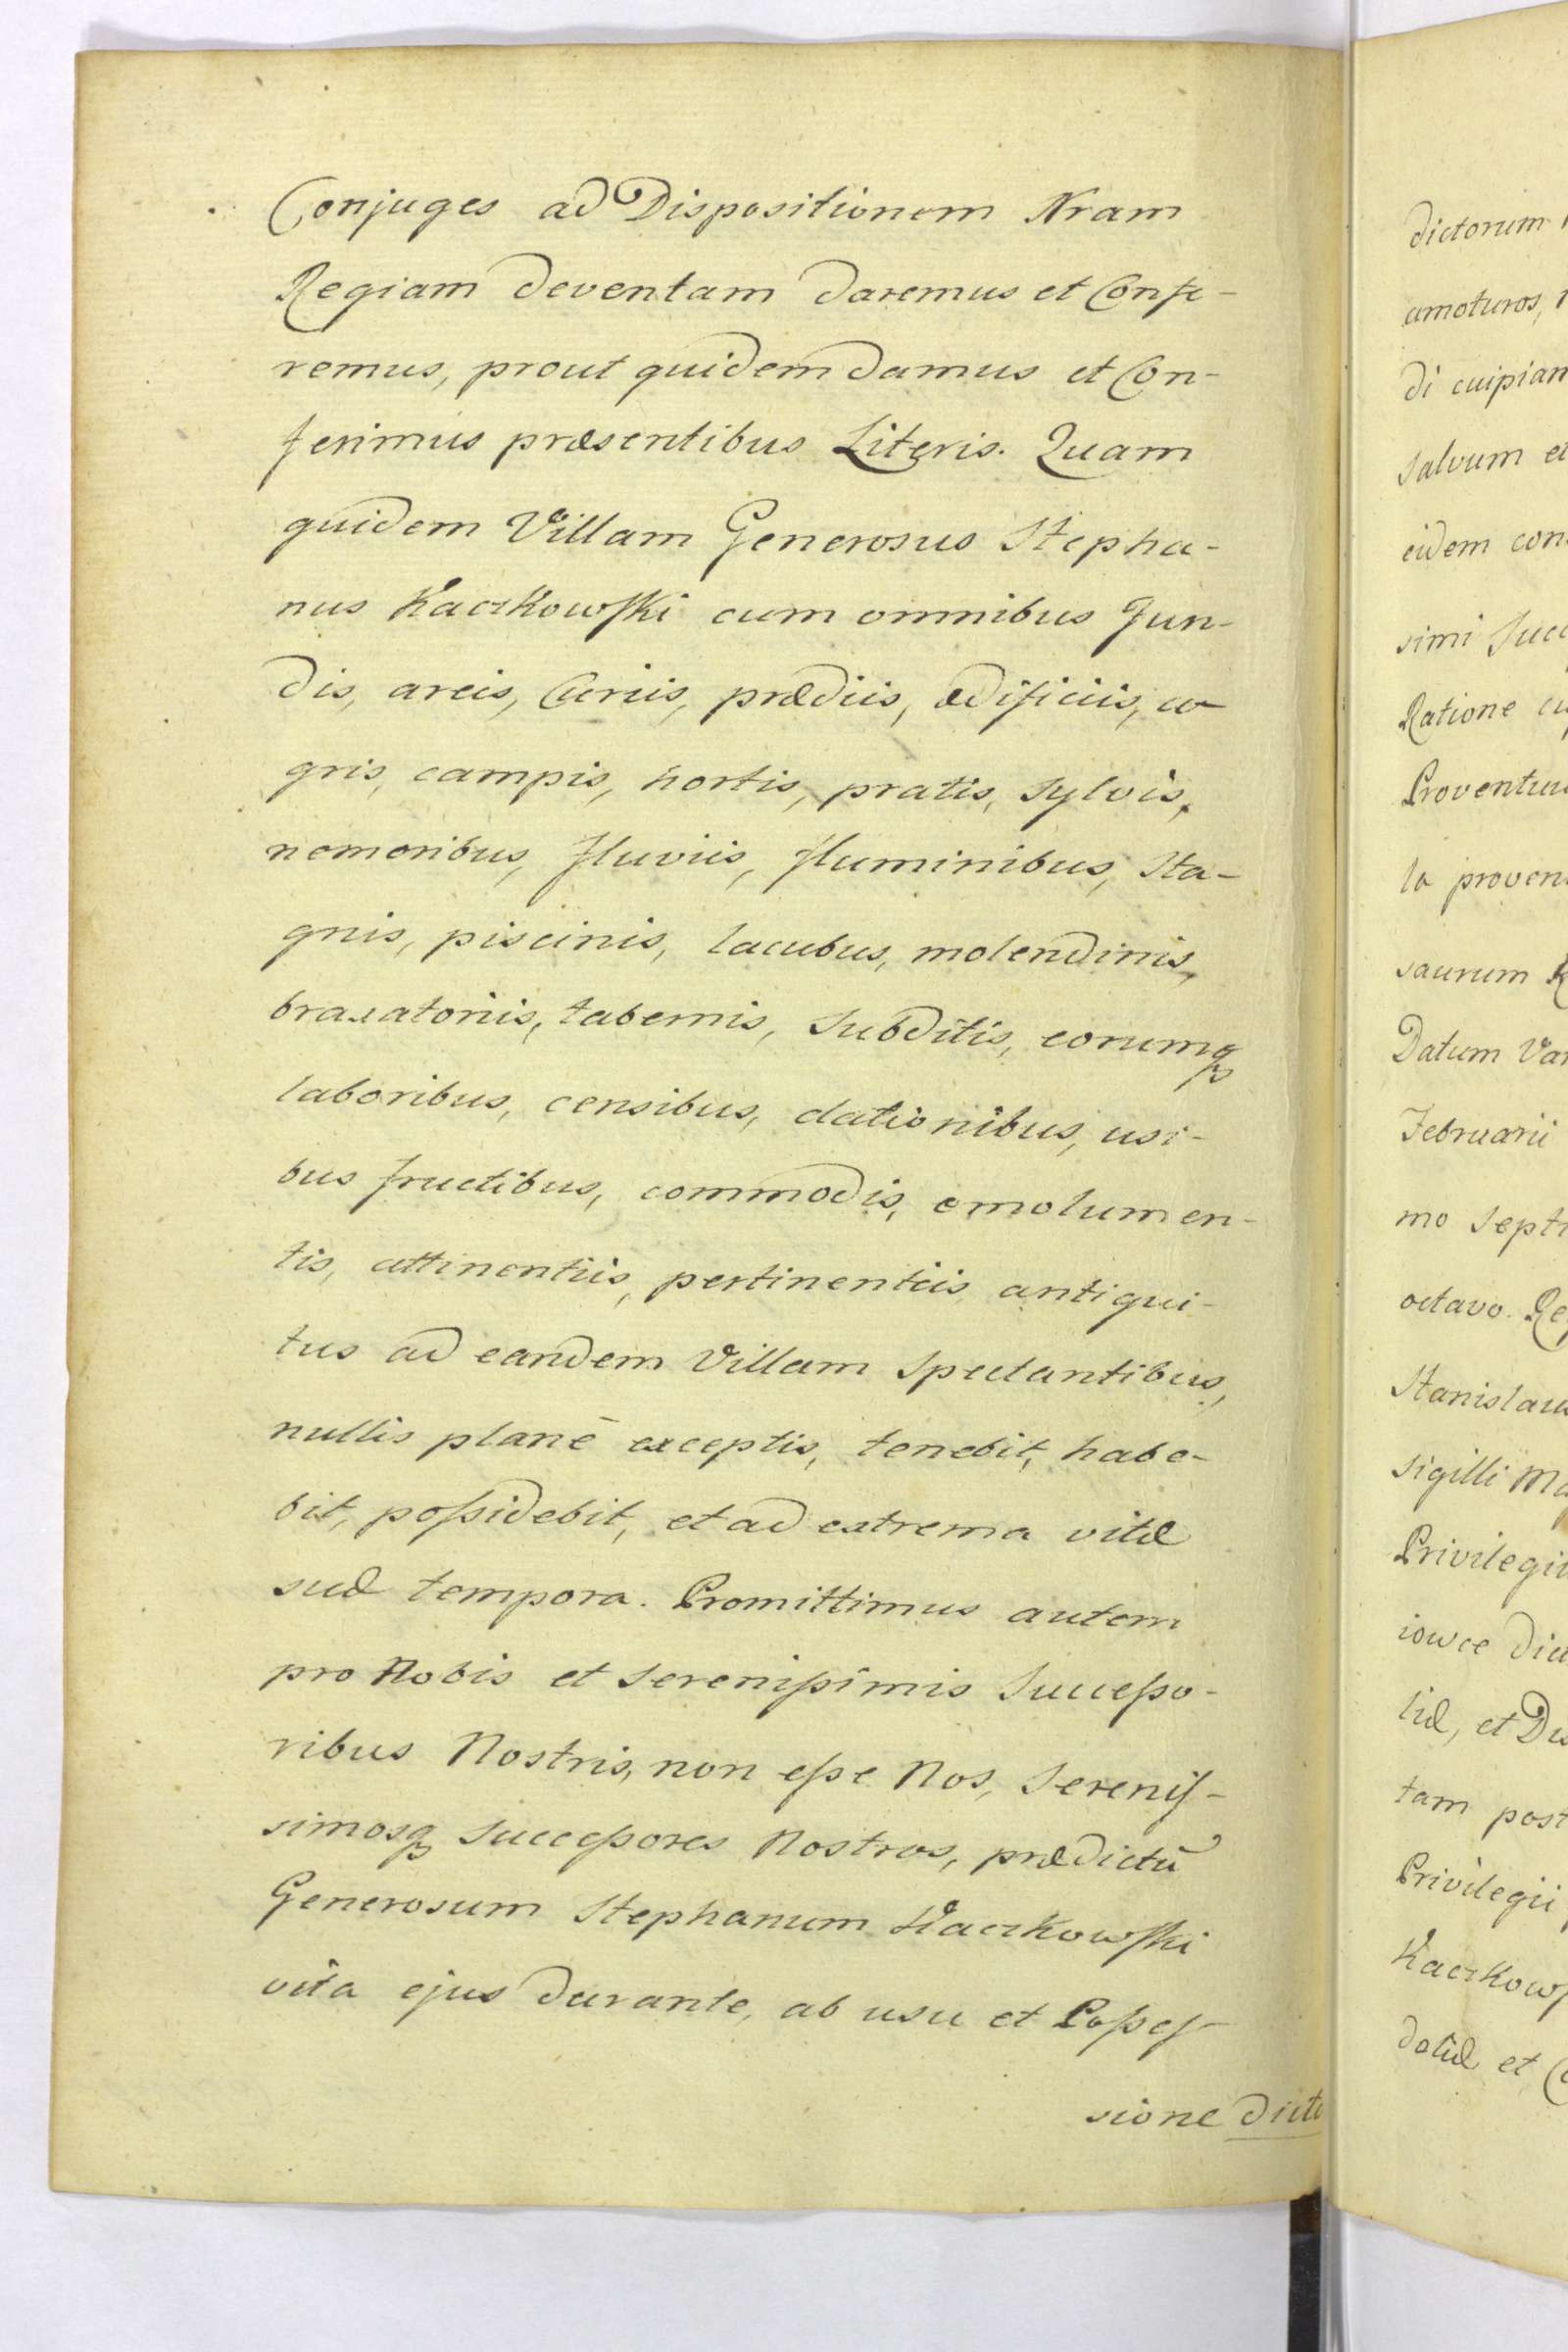 Conjuges ad Dispositionem Nram
Regiam deventam daremus et Confe-
remus, prout quidem damus et Con-
ferimus præsentibus Literis. Quam
quidem Villam Generosus Stepha-
nus Kaczkowski cum omnibus Fun-
dis, areis, Curiis, prædiis, ædificiis, a-
gris, campis, hortis, pratis, sylvis,
nemoribus, fluviis, fluminibus, sta-
gnis, piscinis, lacubus, molendinis,
braxatoriis, tabernis, subditis, eorumq
laboribus, censibus, dationibus, usi-
bus fructibus, commodis, emolumen-
tis, attinentiis, pertinentiis antiqui-
tus ad eandem Villam spectantibus,
nullis planè exceptis, tenebit, habe-
bit, possidebit, et ad extrema vitæ
suæ tempora. Promittimus autem
pro Nobis et Serenissimis Successo-
ribus Nostris, non esse Nos, Serenis-
simosq Successores Nostros, prædictū
Generosum Stephanum Kaczkowski
vita ejus durante, ab usu et Posses-
sione dicto
dictorum
amoturos,
di cuipiam
salvum et
eidem con
simi Succ
Ratione
Proventu
la proven
saurum
Datum Var
Februarii
mo septi
octavo. Re
Stanislau
sigilli Ma
Privilegii
iowce dict
liæ, et Du
tam post
Privilegii
Kaczkows
doliæ et